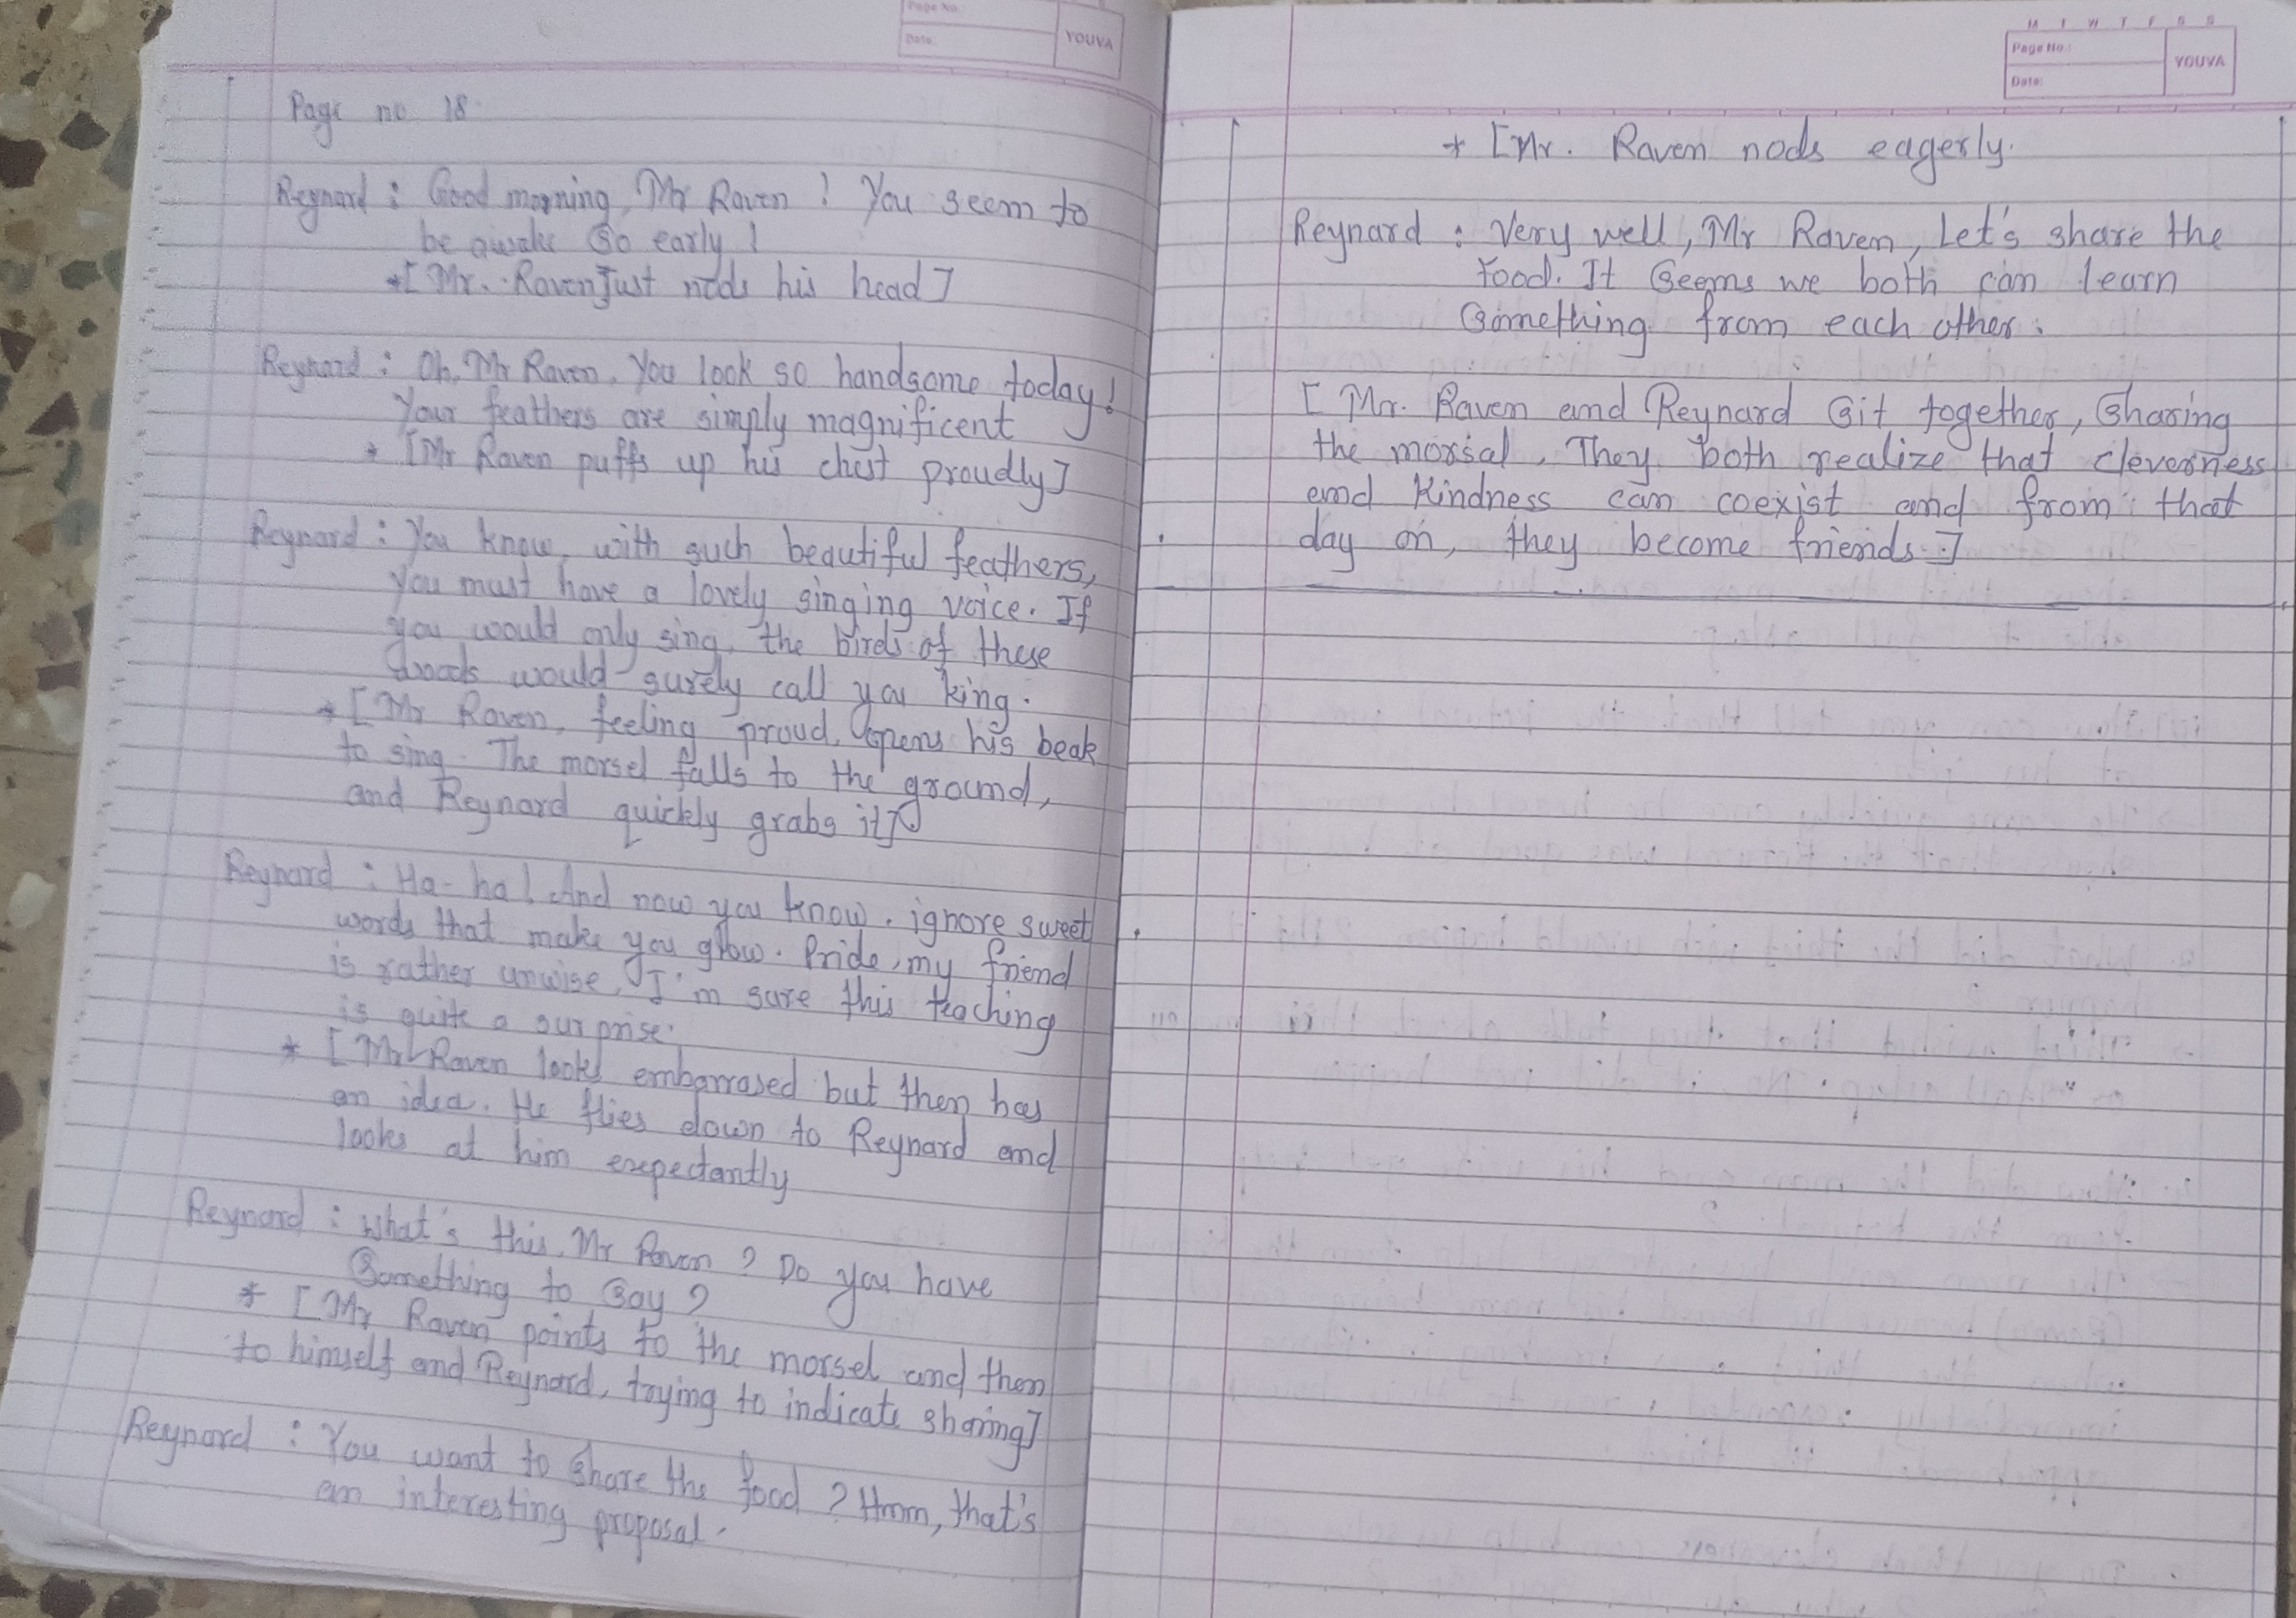 Page No.
Date:
YOUVA
Page no 18
Reynard : Good morning, Mr Raven ! You seem to
be awake so early !
*[ Mr. Raven just nods his head ]
Reynard : Oh, Mr Raven, You look so handsome today!
Your feathers are simply magnificent
* [Mr Raven puffs up his chest proudly]
Reynard : You know, with such beautiful feathers,
you must have a lovely singing voice. If
you would only sing, the birds of these
woods would surely call you king.
* [ Mr Raven, feeling proud, opens his beak
to sing. The morsel falls to the ground,
and Reynard quickly grabs it]
Reynard : Ha-ha! And now you know. ignore sweet
words that make you glow. Pride, my friend
is rather unwise, I'm sure this teaching
is quite a surprise.
* [ Mr Raven looks embarrased but then has
an idea. He flies down to Reynard and
looks at him exepectantly
Reynard : What's this, Mr Raven ? Do you have
Something to Say ?
* [ Mr Raven points to the morsel and then
to himself and Reynard, trying to indicate sharing]
Reynard : You want to share the food ? Hmm, that's
an interesting proposal.
M T W T F S S
Page No.:
Date:
YOUVA
* [Mr. Raven nods eagerly.
Reynard : Very well, Mr Raven, Let's share the
food. It Seems we both can learn
Something from each other.
[ Mr. Raven and Reynard Sit together, Sharing
the morsal. They both realize that cleverness
and Kindness can coexist and from that
day on, they become friends.]